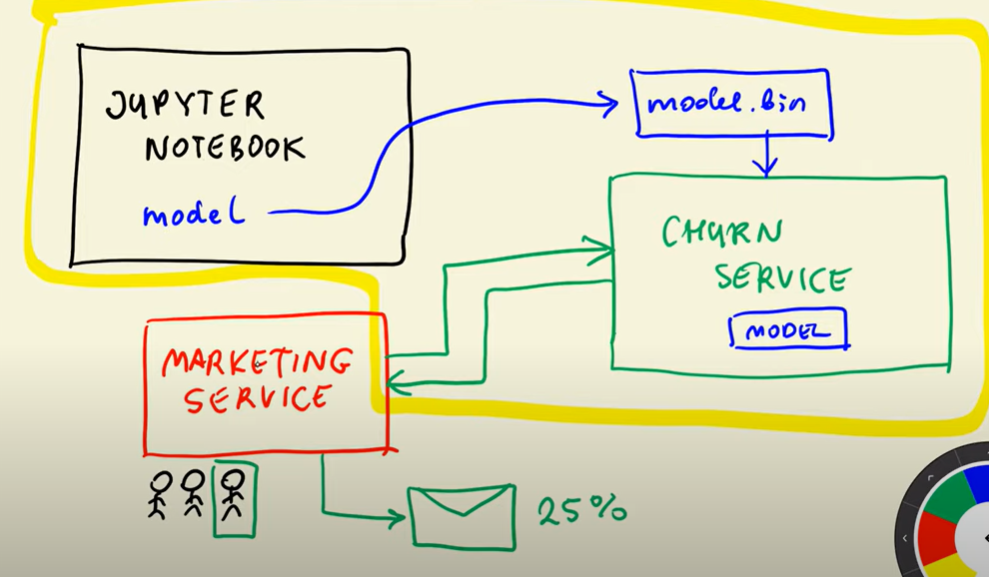 JUPYTER
NOTEBOOK
model
model.bin
CHURN
SERVICE
MODEL
MARKETING
SERVICE
25%